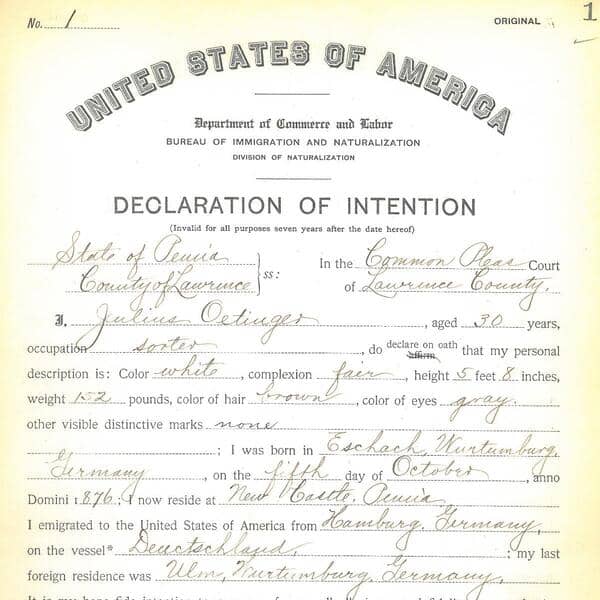 No. 1 ORIGINAL 1
UNITED STATES OF AMERICA
Department of Commerce and Labor
BUREAU OF IMMIGRATION AND NATURALIZATION
DIVISION OF NATURALIZATION
DECLARATION OF INTENTION
(Invalid for all purposes seven years after the date hereof)
State of Penn'a
County of Lawrence } ss:
In the Common Pleas Court
of Lawrence County.
I, Julius Oetinger, aged 30 years,
occupation sorter, do declare on oath affirm that my personal
description is: Color white, complexion fair, height 5 feet 8 inches,
weight 152 pounds, color of hair brown, color of eyes gray.
other visible distinctive marks none
; I was born in Eschach, Wurtumburg,
Germany, on the fifth day of October, anno
Domini 1876; I now reside at New Castle, Penn'a
I emigrated to the United States of America from Hamburg, Germany,
on the vessel* Deuctschland, ; my last
foreign residence was Ulm, Wurtumburg, Germany,
It is my bona fide intention to